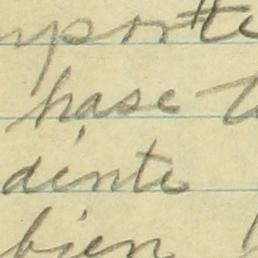 mporte
hase t
dente
bien